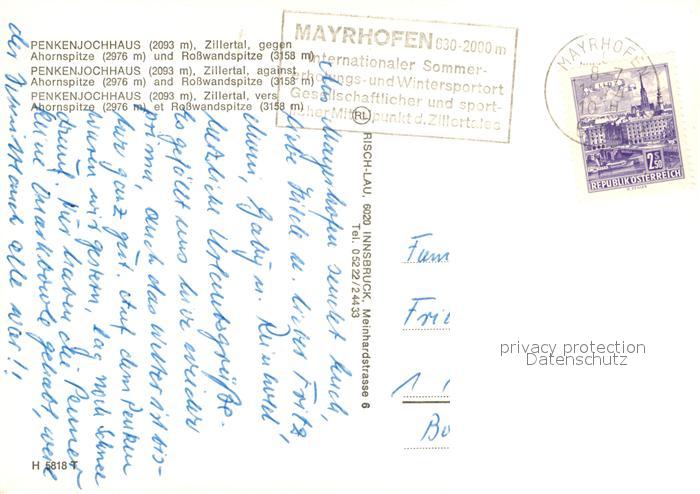 PENKENJOCHHAUS (2093 m), Zillertal, gegen
Ahornspitze (2976 m) und Roßwandspitze (3158 m)
PENKENJOCHHAUS (2093 m), Zillertal, against
Ahornspitze (2976 m) and Roßwandspitze (3158 m)
PENKENJOCHHAUS (2093 m), Zillertal, vers
Ahornspitze (2976 m) et Roßwandspitze (3158 m)
MAYRHOFEN 630-2000 m
Internationaler Sommer-
Erholungs- und Wintersportort
Gesellschaftlicher und sport-
licher Mittelpunkt d. Zillertales
MAYRHOFE
2.50
REPUBLIK ÖSTERREICH
RL
RISCH-LAU, 6020 INNSBRUCK, Meinhardstrasse 6
Tel. 05222/24433
Aus Mayrhofen sendet Euch,
liebe Hilde u. lieber Fritz,
Mimi, Gaby u. Reinhold
herzliche Urlaubsgrüße.
Es gefällt uns hier wieder
prima, auch das Wetter ist bis-
her ganz gut. Auf dem Penken
waren wir gestern, lag noch Schnee
drauf. Wir haben die
keine gehabt, weil
der alle war!!
Fam
Fri
1
Bo
H 5818 T
privacy protection
Datenschutz